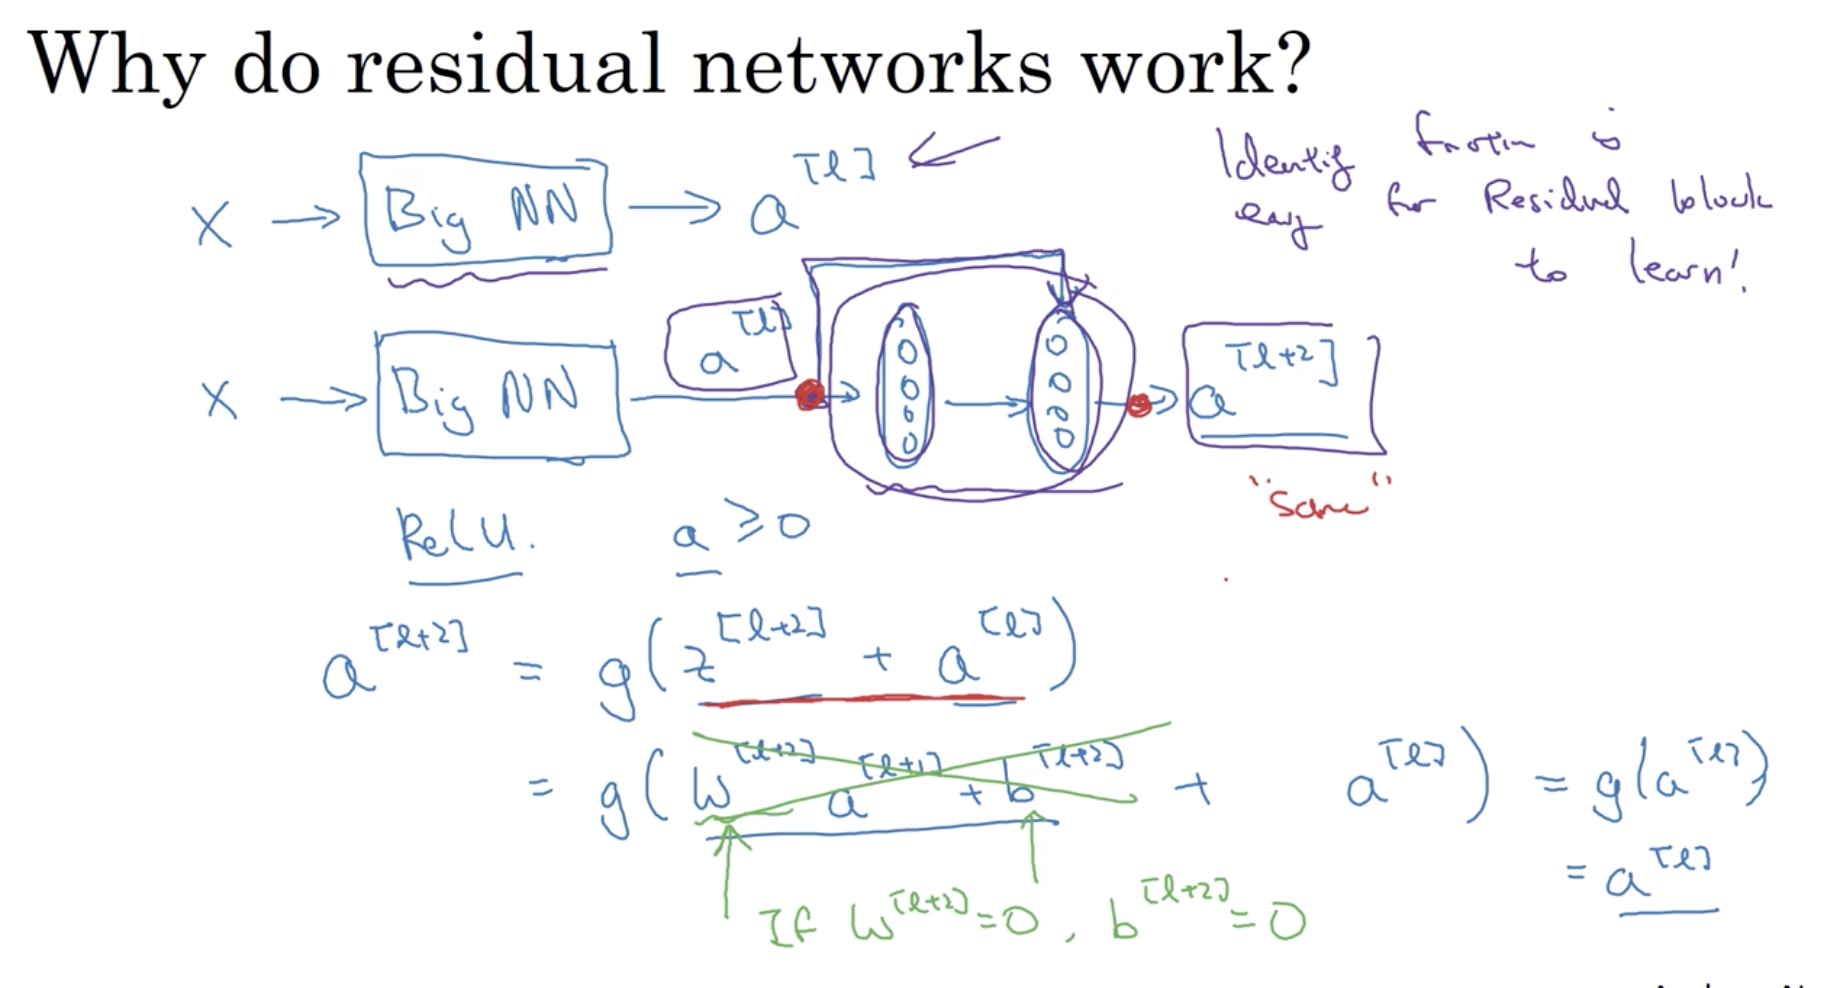 Why do residual networks work?
X → Big NN → a[l]
Identity function is
easy for Residual block
to learn!
X → Big NN → a[l] → → a[l+2]
"Same"
ReLU. a ≥ 0
a[l+2] = g(z[l+2] + a[l])
= g(W[l+2] a[l+1] + b[l+2] + a[l]) = g(a[l])
= a[l]
If W[l+2] = 0, b[l+2] = 0